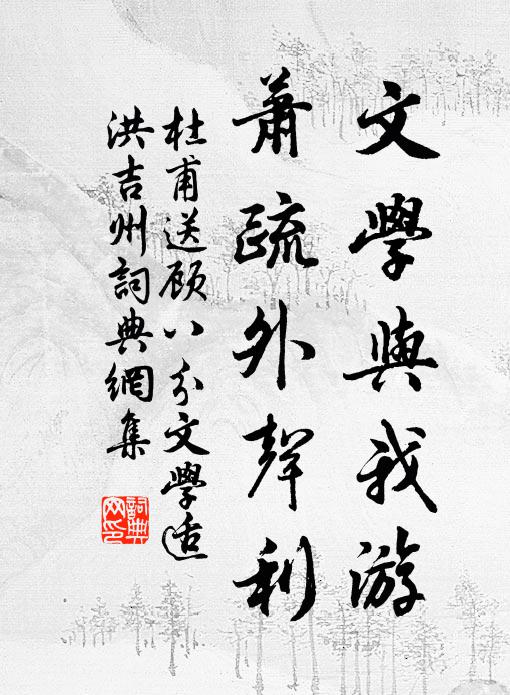 文學與我游
蕭疏外聲利
杜甫送顾八分文學适
洪吉州詞典網集
詞典网印